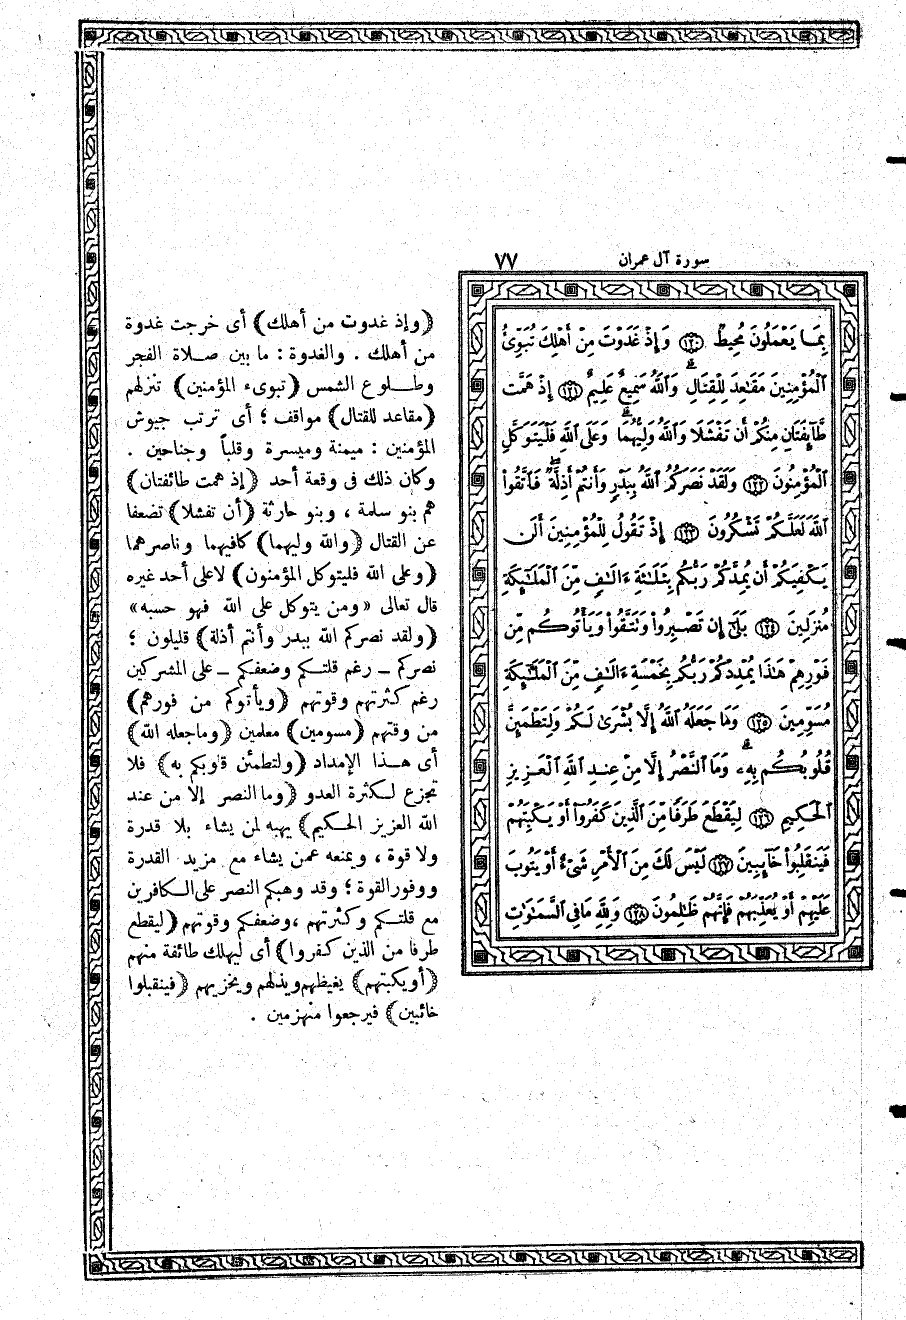 سورة آل عمران ٧٧
بِمَا يَعْمَلُونَ مُحِيطٌ ﴿١٢٠﴾ وَإِذْ غَدَوْتَ مِنْ أَهْلِكَ تُبَوِّئُ
ٱلْمُؤْمِنِينَ مَقَٰعِدَ لِلْقِتَالِ ۗ وَٱللَّهُ سَمِيعٌ عَلِيمٌ ﴿١٢١﴾ إِذْ هَمَّت
طَّآئِفَتَانِ مِنكُمْ أَن تَفْشَلَا وَٱللَّهُ وَلِيُّهُمَا ۗ وَعَلَى ٱللَّهِ فَلْيَتَوَكَّلِ
ٱلْمُؤْمِنُونَ ﴿١٢٢﴾ وَلَقَدْ نَصَرَكُمُ ٱللَّهُ بِبَدْرٍ وَأَنتُمْ أَذِلَّةٌ ۖ فَٱتَّقُوا۟
ٱللَّهَ لَعَلَّكُمْ تَشْكُرُونَ ﴿١٢٣﴾ إِذْ تَقُولُ لِلْمُؤْمِنِينَ أَلَن
يَكْفِيَكُمْ أَن يُمِدَّكُمْ رَبُّكُم بِثَلَٰثَةِ ءَالَٰفٍ مِّنَ ٱلْمَلَٰٓئِكَةِ
مُنزَلِينَ ﴿١٢٤﴾ بَلَىٰٓ إِن تَصْبِرُوا۟ وَتَتَّقُوا۟ وَيَأْتُوكُم مِّن
فَوْرِهِمْ هَٰذَا يُمْدِدْكُمْ رَبُّكُم بِخَمْسَةِ ءَالَٰفٍ مِّنَ ٱلْمَلَٰٓئِكَةِ
مُسَوِّمِينَ ﴿١٢٥﴾ وَمَا جَعَلَهُ ٱللَّهُ إِلَّا بُشْرَىٰ لَكُمْ وَلِتَطْمَئِنَّ
قُلُوبُكُم بِهِۦ ۗ وَمَا ٱلنَّصْرُ إِلَّا مِنْ عِندِ ٱللَّهِ ٱلْعَزِيزِ
ٱلْحَكِيمِ ﴿١٢٦﴾ لِيَقْطَعَ طَرَفًا مِّنَ ٱلَّذِينَ كَفَرُوٓا۟ أَوْ يَكْبِتَهُمْ
فَيَنقَلِبُوا۟ خَآئِبِينَ ﴿١٢٧﴾ لَيْسَ لَكَ مِنَ ٱلْأَمْرِ شَىْءٌ أَوْ يَتُوبَ
عَلَيْهِمْ أَوْ يُعَذِّبَهُمْ فَإِنَّهُمْ ظَٰلِمُونَ ﴿١٢٨﴾ وَلِلَّهِ مَا فِى ٱلسَّمَٰوَٰتِ
(وإذ غدوت من أهلك) أى خرجت غدوة
من أهلك . والغدوة : ما بين صلاة الفجر
وطلوع الشمس (تبوىء المؤمنين) تنزلهم
(مقاعد للقتال) مواقف ؛ أى ترتب جيوش
المؤمنين : ميمنة وميسرة وقلباً وجناحين .
وكان ذلك فى وقعة أحد (إذ همت طائفتان)
هم بنو سلمة ، وبنو حارثة (أن تفشلا) تضعفا
عن القتال (والله وليهما) كافيهما وناصرهما
(وعلى الله فليتوكل المؤمنون) لاعلى أحد غيره
قال تعالى «ومن يتوكل على الله فهو حسبه»
(ولقد نصركم الله ببدر وأنتم أذلة) قليلون ؛
نصركم ــ رغم قلتكم وضعفكم ــ على المشركين
رغم كثرتهم وقوتهم (ويأتوكم من فورهم)
من وقتهم (مسومين) معلمين (وماجعله الله)
أى هذا الإمداد (ولتطمئن قلوبكم به) فلا
تجزع لكثرة العدو (وما النصر إلا من عند
الله العزيز الحكيم) يهبه لمن يشاء بلا قدرة
ولا قوة ، ويمنعه عمن يشاء مع مزيد القدرة
ووفور القوة ؛ وقد وهبكم النصر على الكافرين
مع قلتكم وكثرتهم ،وضعفكم وقوتهم (ليقطع
طرفا من الذين كفروا) أى ليهلك طائفة منهم
(أو يكبتهم) يغيظهم ويذلهم ويخزيهم (فينقبلوا
خائبين) فيرجعوا منهزمين .